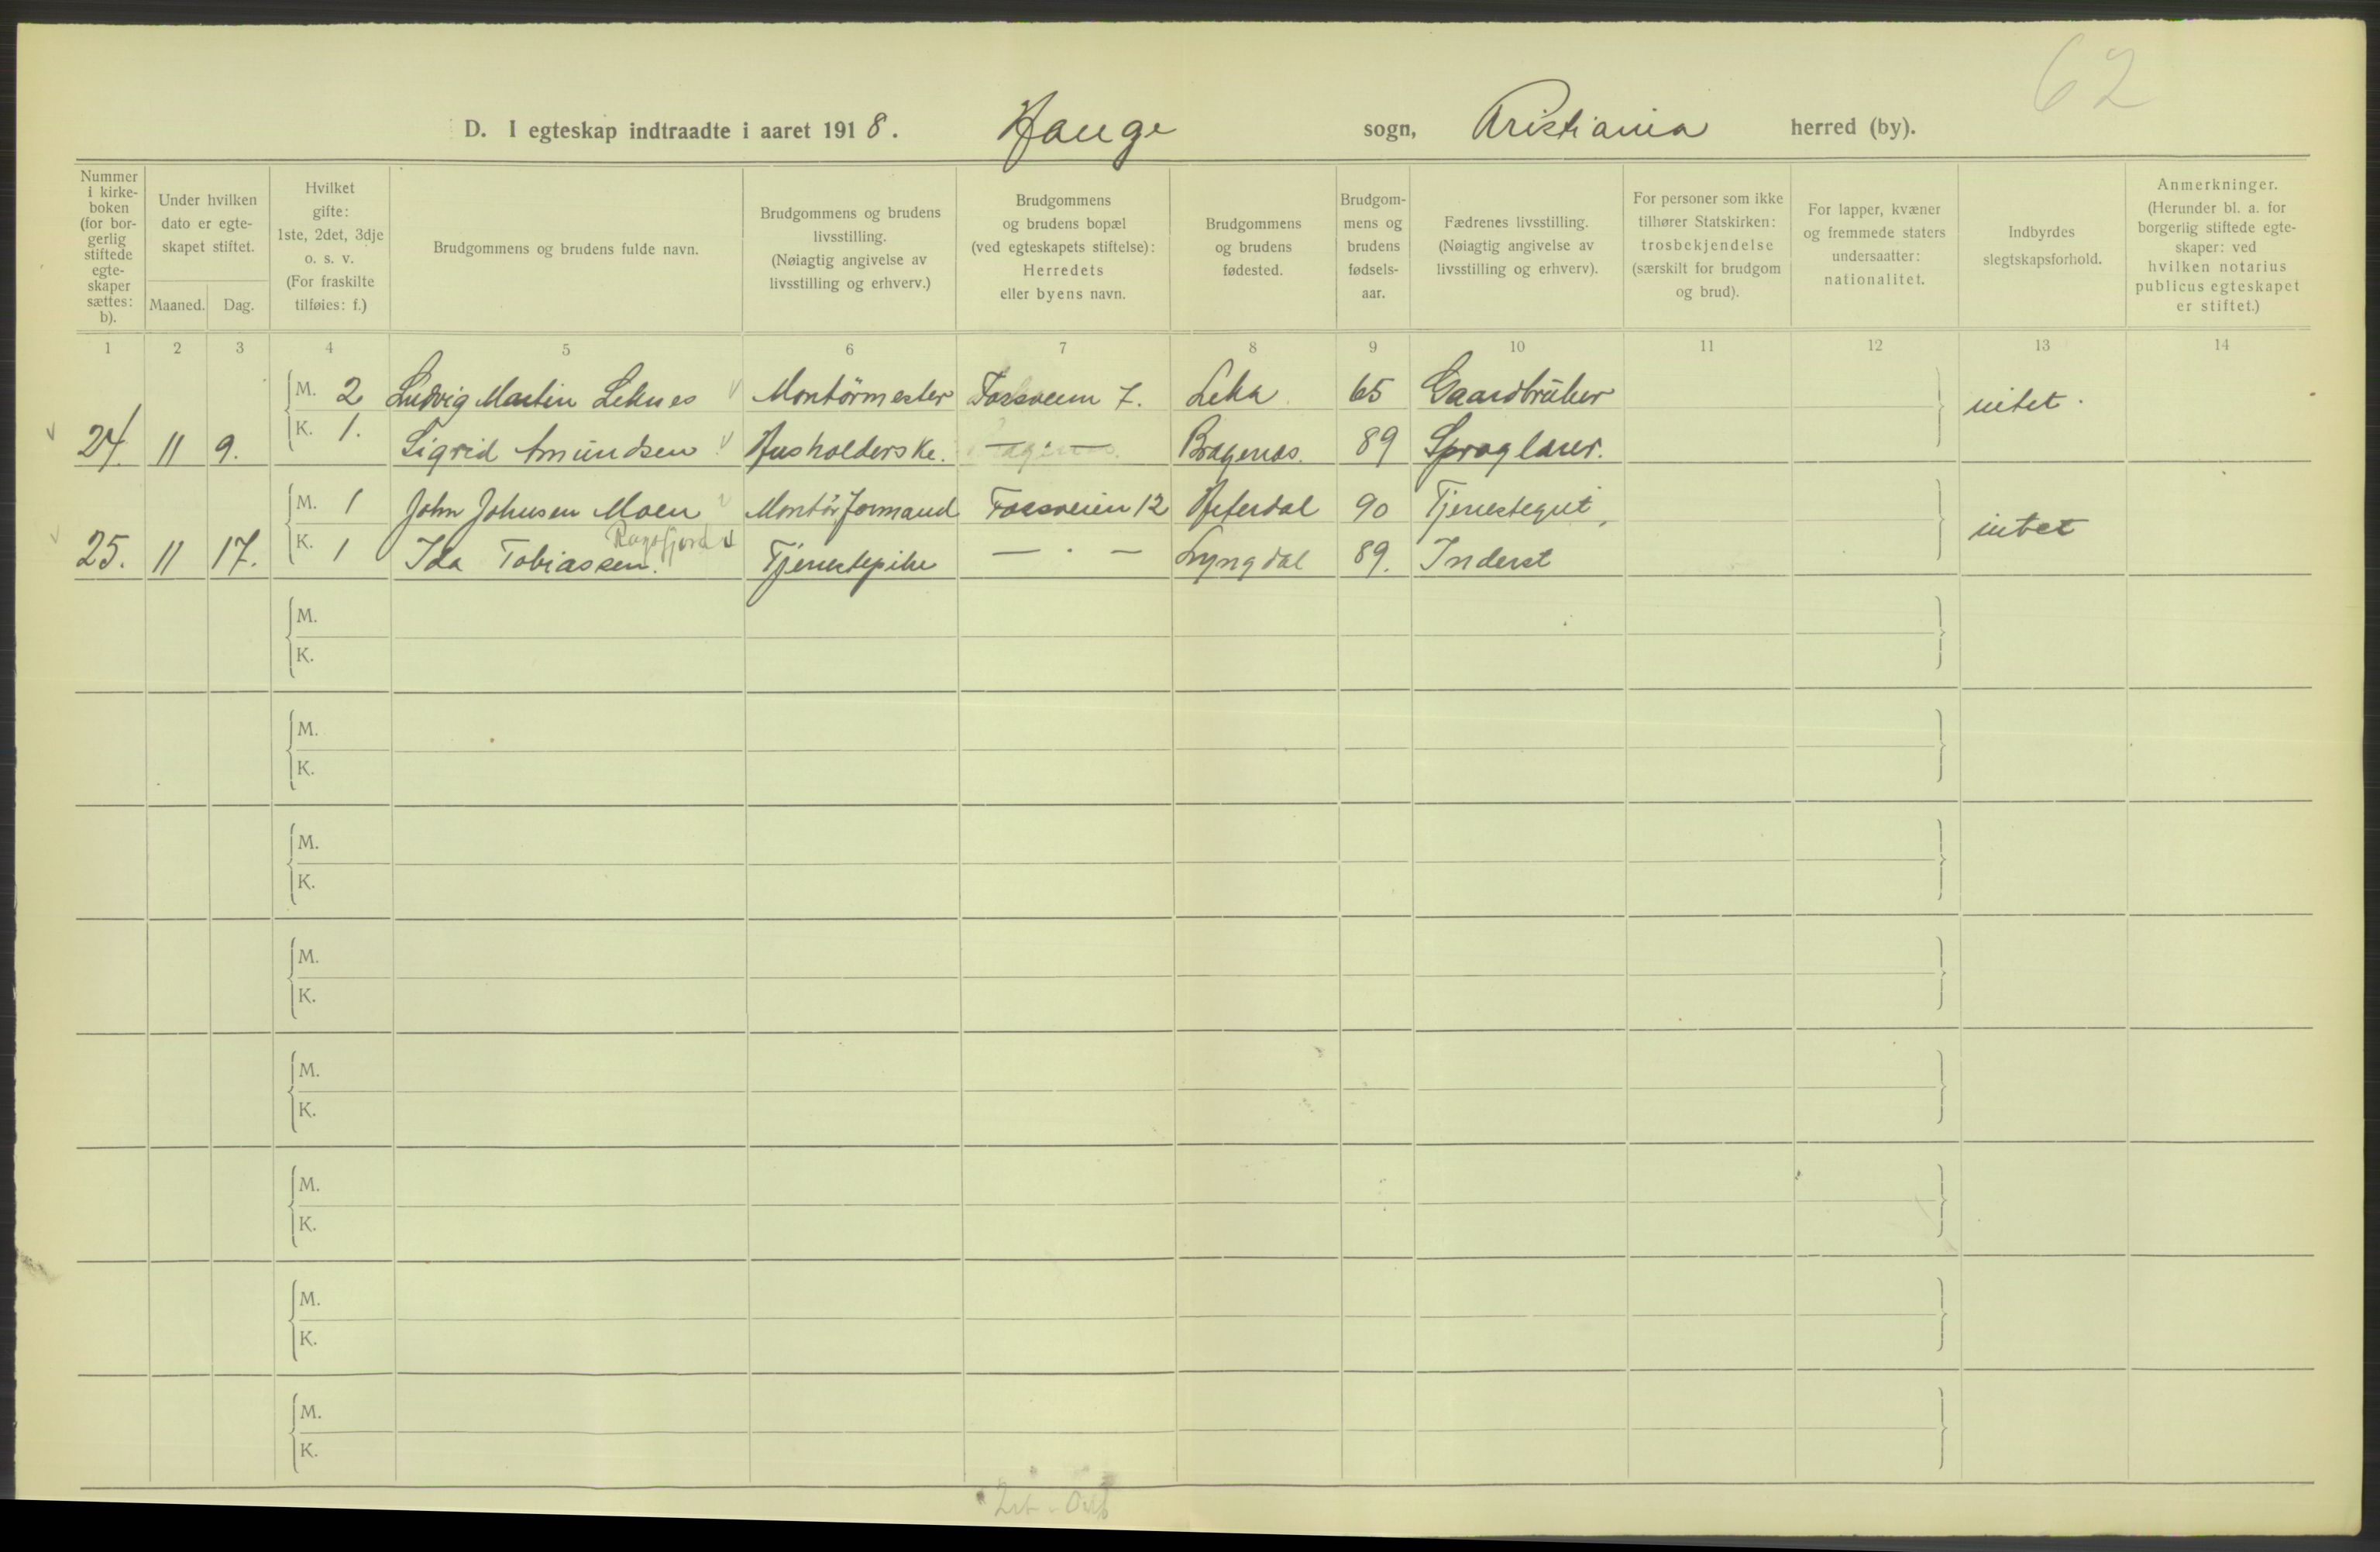 62
D. I egteskap indtraadte i aaret 1918. Hauge sogn, Kristiania herred (by).
Nummer i kirke- boken (for bor- gerlig stiftede egte- skaper sættes: b).
Under hvilken dato er egte- skapet stiftet.
Maaned. Dag.
Hvilket gifte: 1ste, 2det, 3dje o. s. v. (For fraskilte tilføies: f.)
Brudgommens og brudens fulde navn.
Brudgommens og brudens livsstilling. (Nøiagtig angivelse av livsstilling og erhverv.)
Brudgommens og brudens bopæl (ved egteskapets stiftelse): Herredets eller byens navn.
Brudgommens og brudens fødested.
Brudgom- mens og brudens fødsels- aar.
Fædrenes livsstilling. (Nøiagtig angivelse av livsstilling og erhverv).
For personer som ikke tilhører Statskirken: trosbekjendelse (særskilt for brudgom og brud).
For lapper, kvæner og fremmede staters undersaatter: nationalitet.
Indbyrdes slegtskapsforhold.
Anmerkninger. (Herunder bl. a. for borgerlig stiftede egte- skaper: ved hvilken notarius publicus egteskapet er stiftet.)
1 2 3 4 5 6 7 8 9 10 11 12 13 14
M. 2 Ludvig Martin Leknes Montörmester Fossveien 7. Leka 65 Gaardbruker intet.
24. 11 9. K. 1. Sigrid Amundsen Husholderske. — · — Bragenæs. 89 Sproglærer.
M. 1 John Johnsen Moen Montör formand Fossveien 12 Hitterdal 90 Tjenestegut intet
25. 11 17. K. 1 Ida Tobiassen. Tjenestepike — · — Lyngdal 89. Inderst
M.
K.
M.
K.
M.
K.
M.
K.
M.
K.
M.
K.
M.
K.
M.
K.